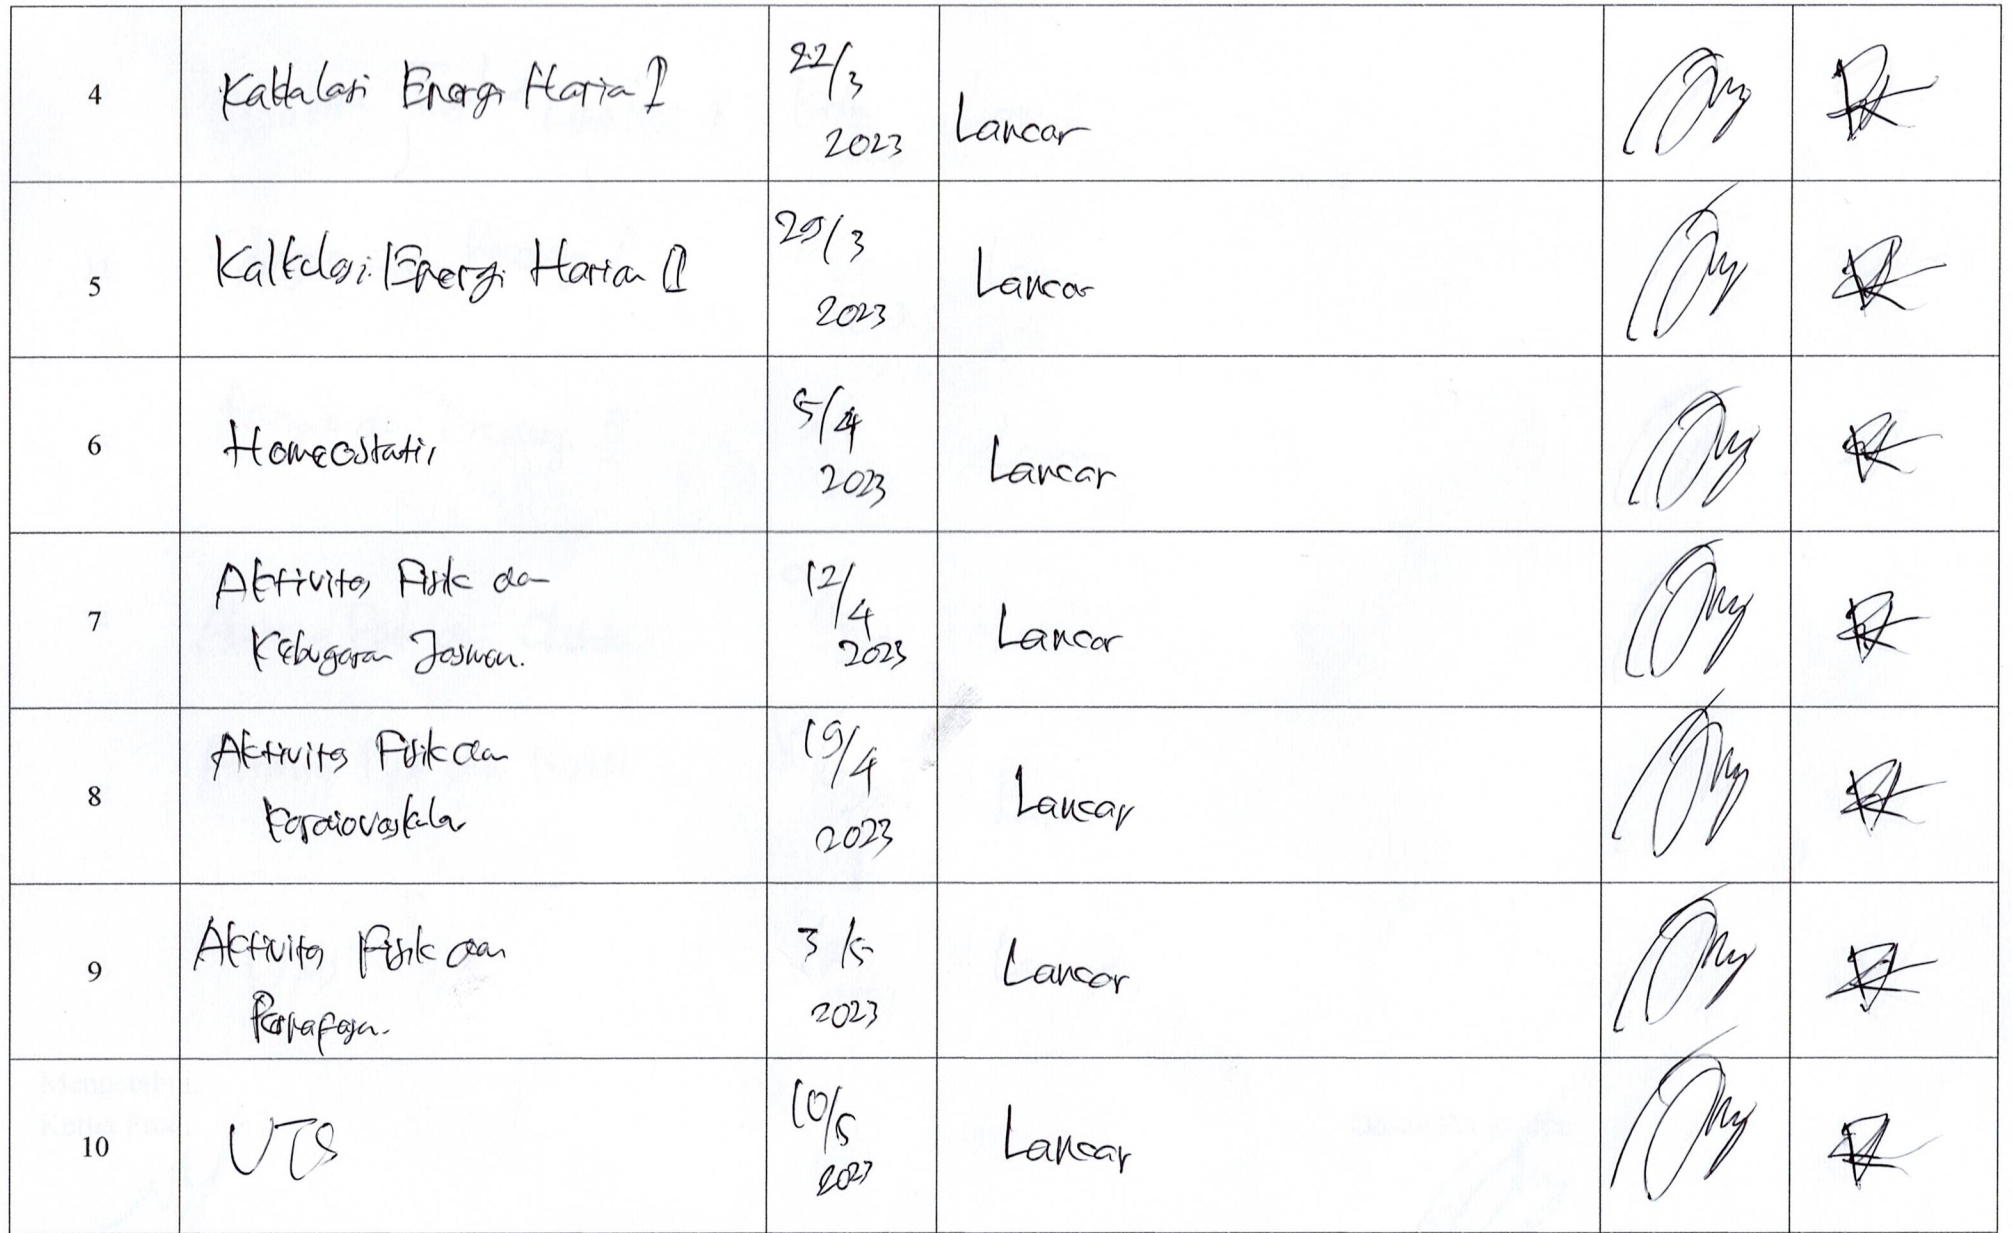 4
Kalkulasi Energi Harian I
22/3
2023
Lancar
5
Kalkulasi Energi Harian II
29/3
2023
Lancar
6
Homeostatis
5/4
2023
Lancar
7
Aktivitas Fisik dan
Kebugaran Jasmani.
12/4
2023
Lancar
8
Aktivitas Fisik dan
Kardiovaskular
19/4
2023
Lancar
9
Aktivitas Fisik dan
3/5
2023
Lancar
10
UTS
10/5
2023
Lancar